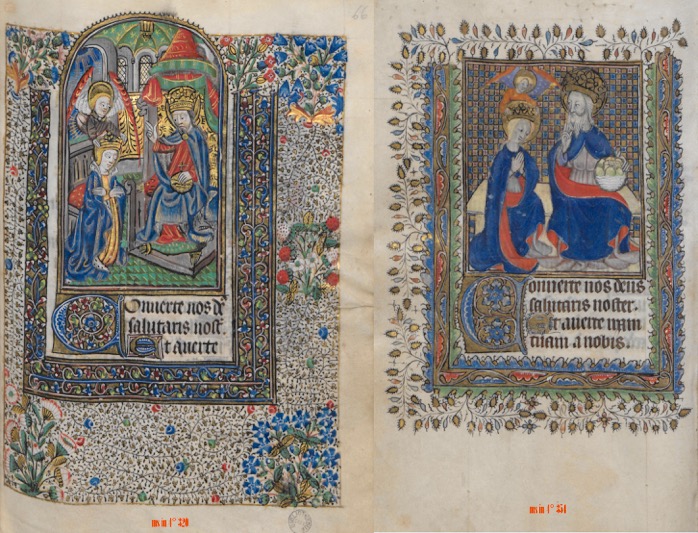 66
Onuerte nos de
salutaris nost
Et auerte
ms in f° 320
onuerte nos deus
salutaris noster.
Et auerte iram
tuam a nobis.
ms in f° 351